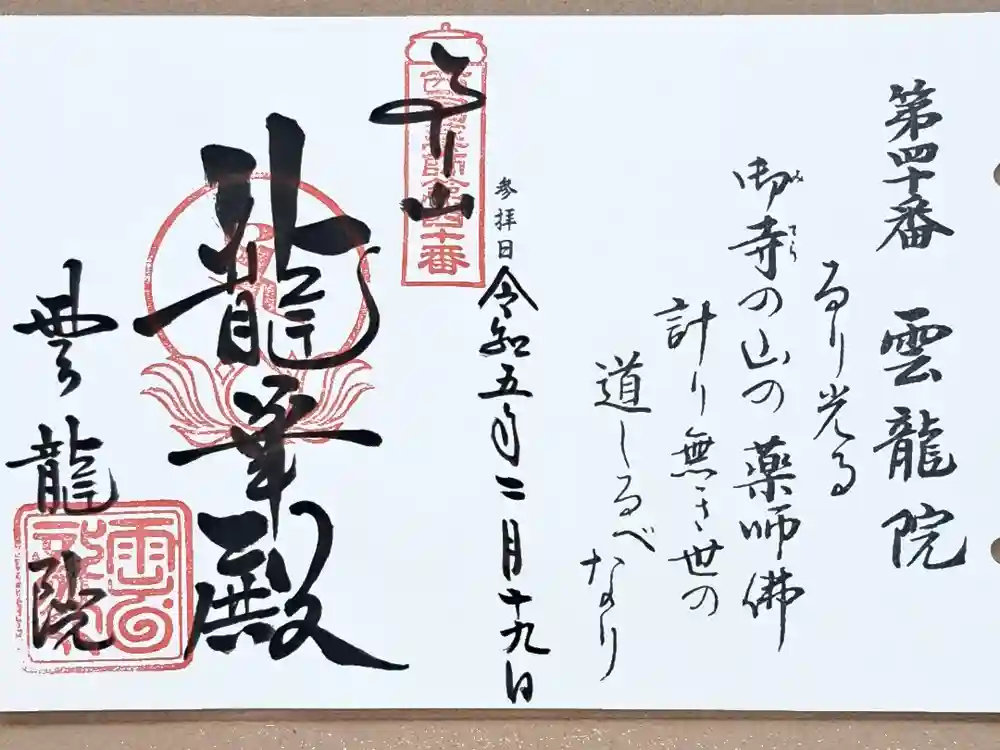 第四十番 雲龍院
るり光る
御寺の山の 薬師佛
みてら
計り無き世の
道しるべなり
参拝日 令和五年二月十九日
るり山
西国薬師第四十番
龍華殿
雲龍院